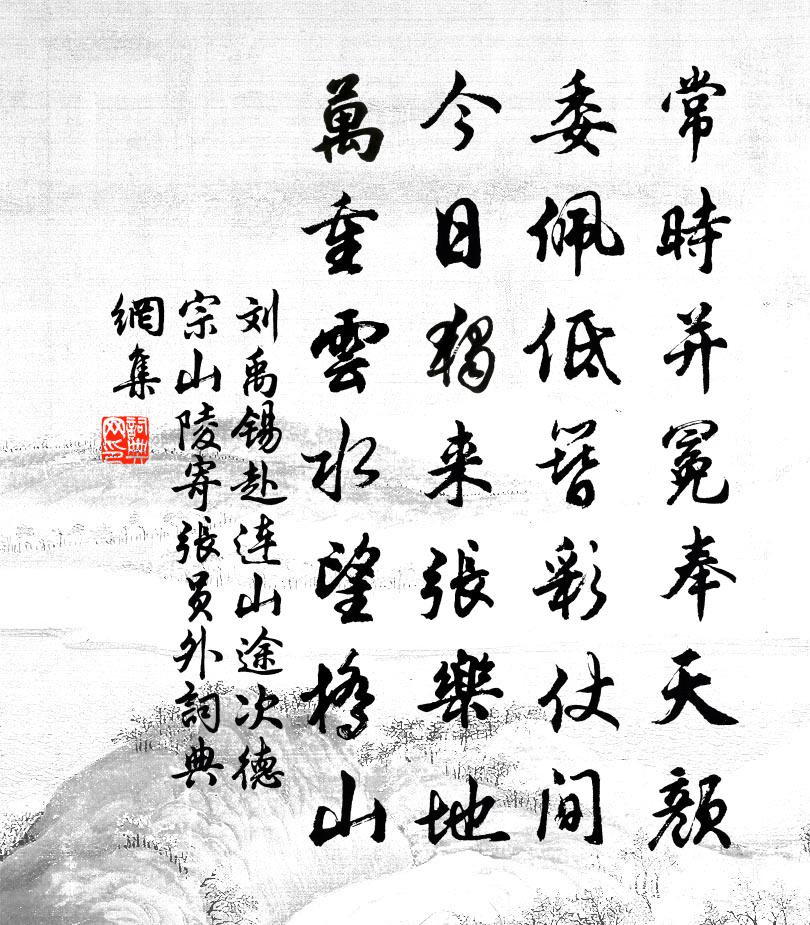 常時并冕奉天顔
委佩低簪彩仗间
今日獨来張樂地
萬重雲水望橋山
刘禹锡赴连山途次德
宗山陵寄張员外詞典
網集
詞典
网